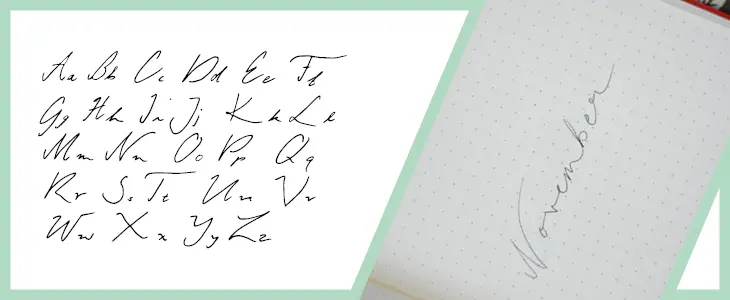 Aa Bb Cc Dd Ee Ff
Gg Hh Ii Jj Kk Ll
Mm Nn Oo Pp Qq
Rr Ss Tt Uu Vv
Ww Xx Yy Zz
November